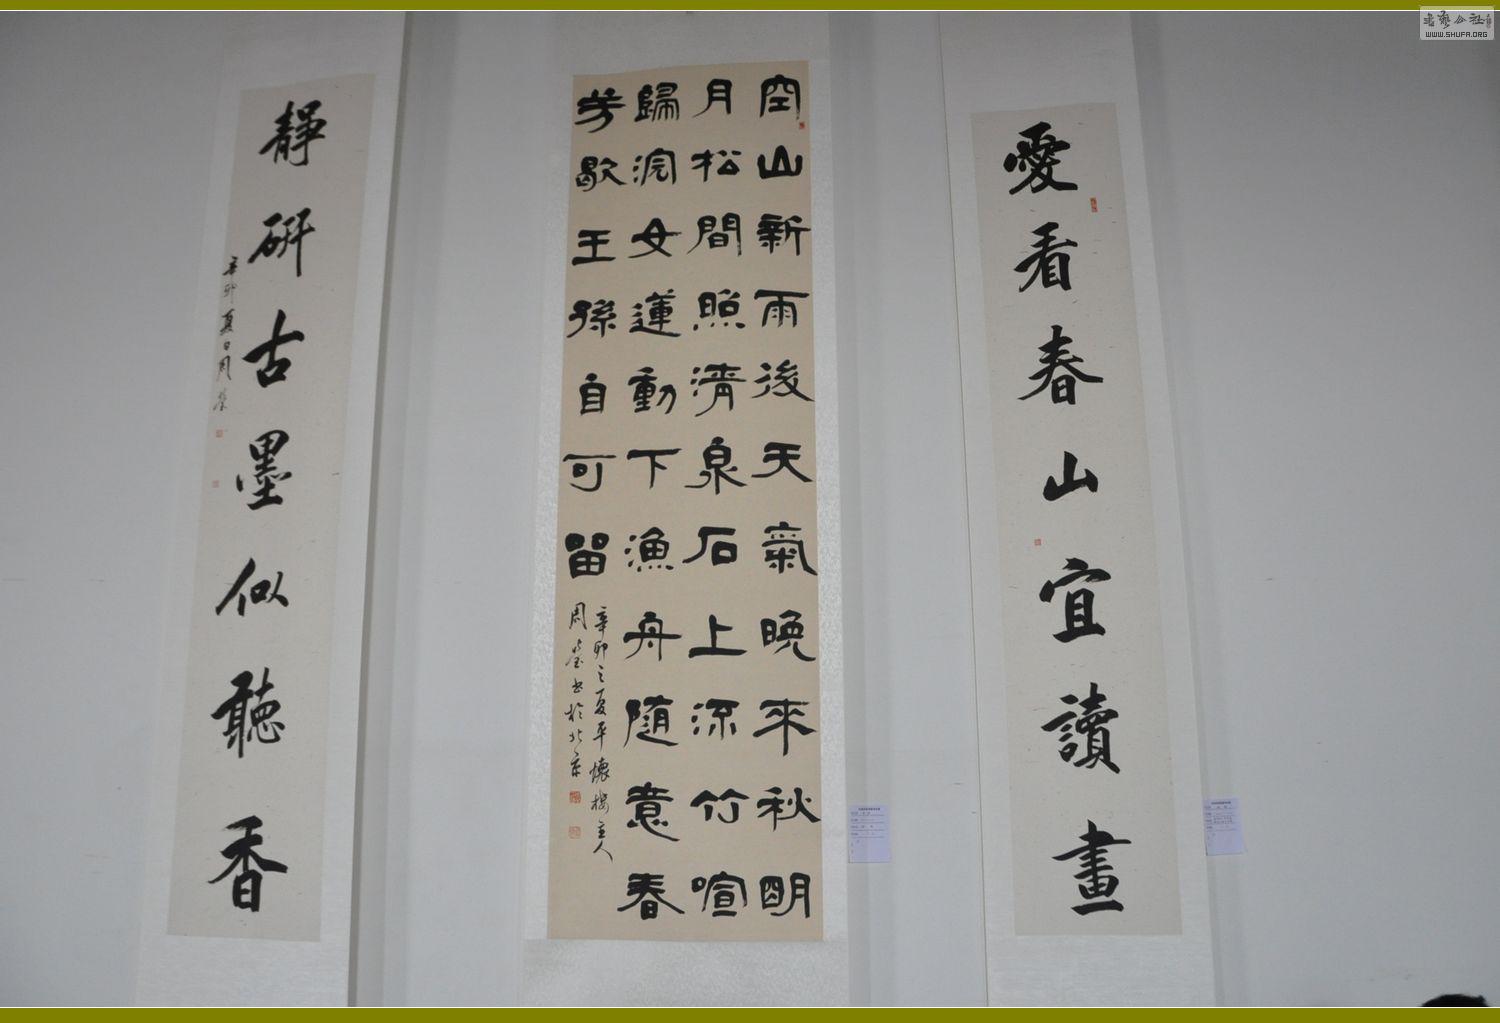 愛看春山宜讀畫
空山新雨後天氣晚来秋明
月松間照清泉石上流竹喧
歸浣女蓮動下漁舟随意春
芳歇王孫自可留
辛卯之夏平懷樓主人
周瑩书於北京
靜研古墨似聽香
辛卯夏日周瑩
WWW.SHUFA.ORG